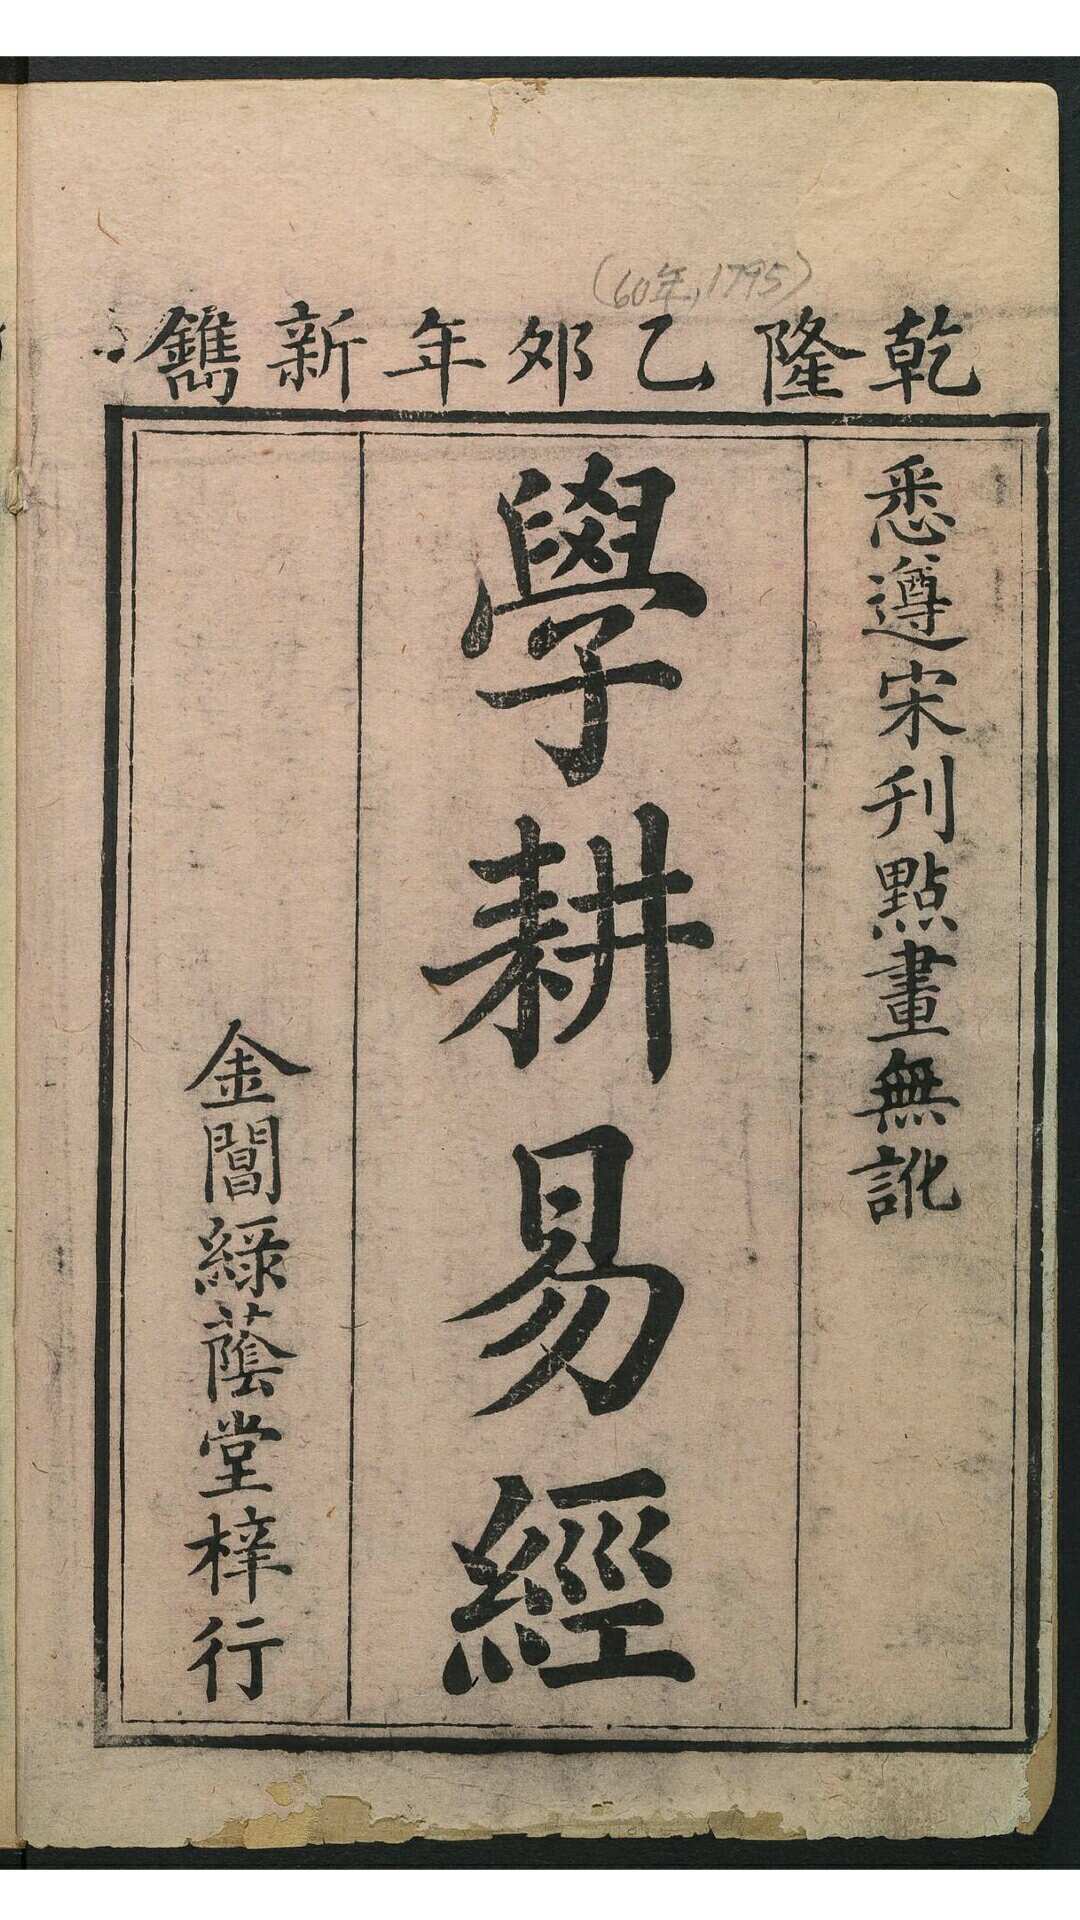 (60年,1795)
乾隆乙卯年新鐫
悉遵宋刊點畫無訛
學耕易經
金閶綠蔭堂梓行